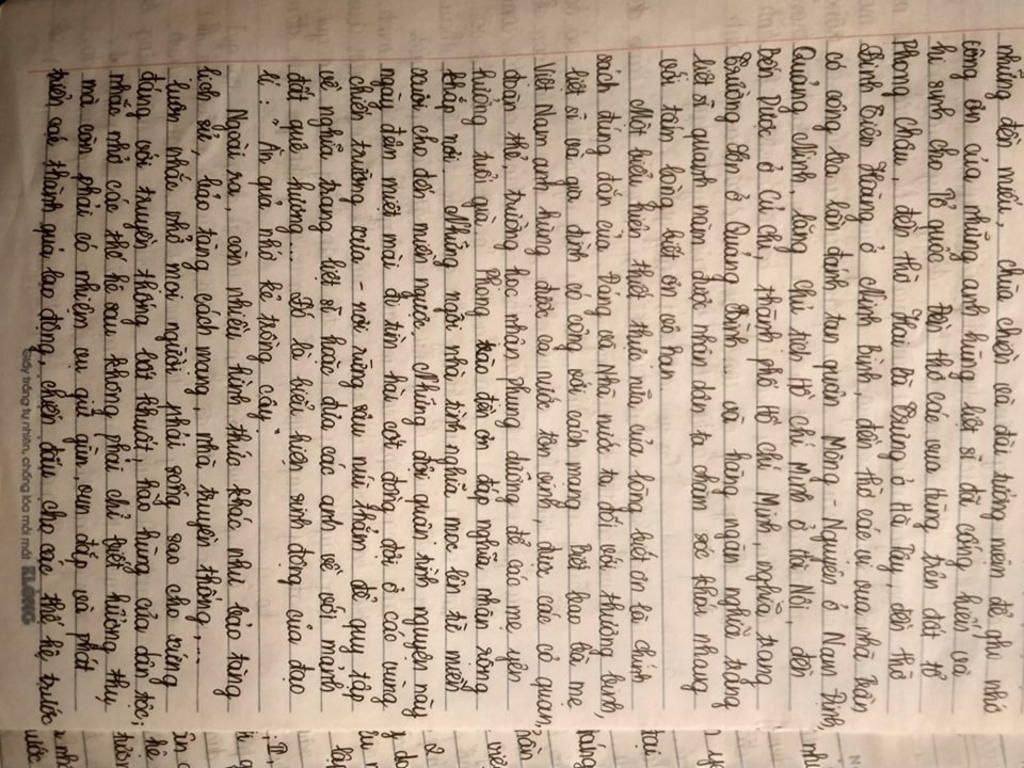 những đền miếu, chùa chiền và đài tưởng niệm để ghi nhớ
công ơn của những anh hùng liệt sĩ đã cống hiến và
hi sinh cho Tổ quốc. Đền thờ các vua Hùng trên đất tổ
Phong Châu, đền thờ Hai Bà Trưng ở Hà Tây, đền thờ
Đinh Tiên Hoàng ở Ninh Bình, đền thờ các vị vua nhà Trần
có công ba lần đánh tan quân Mông - Nguyên ở Nam Định,
Quảng Ninh, lăng chủ tịch Hồ Chí Minh ở Hà Nội, đền
Bến Dược ở Củ Chi, thành phố Hồ Chí Minh, nghĩa trang
Trường Sơn ở Quảng Bình... và hàng ngàn nghĩa trang
liệt sĩ quanh năm được nhân dân ta chăm sóc khói nhang
với tấm lòng biết ơn vô hạn.
Một biểu hiện thiết thực nữa của lòng biết ơn là chính
sách đúng đắn của Đảng và Nhà nước ta đối với thương binh,
liệt sĩ và gia đình có công với cách mạng. Biết bao bà mẹ
Việt Nam anh hùng được cả nước tôn vinh, được các cơ quan,
đoàn thể, trường học nhận phụng dưỡng để các mẹ yên
hưởng tuổi già. Phong trào đền ơn đáp nghĩa nhân rộng
khắp nơi. Những ngôi nhà tình nghĩa mọc lên từ miền
xuôi cho đến miền ngược. Những đội quân tình nguyện này
ngày đêm miệt mài đi tìm hài cốt đồng đội ở các vùng
chiến trường xưa - nơi rừng sâu núi thẳm để quy tập
về nghĩa trang liệt sĩ hoặc đưa các anh về với mảnh
đất quê hương... Đó là biểu hiện sinh động của đạo
lí: " Ăn quả nhớ kẻ trồng cây."
Ngoài ra, còn nhiều hình thức khác như bảo tàng
lịch sử, bảo tàng cách mạng, nhà truyền thống,...
luôn nhắc nhở mọi người phải sống sao cho xứng
đáng với truyền thống tốt thuốt, hào hùng của dân tộc;
nhắc nhở các thế hệ sau không phải chỉ biết hưởng thụ
mà còn phải có nhiệm vụ giữ gìn, vun đắp và phát
triển các thành quả lao động, chiến đấu cho các thế hệ trước
Giấy trắng tự nhiên, chống lóa mỏi mắt KLONG